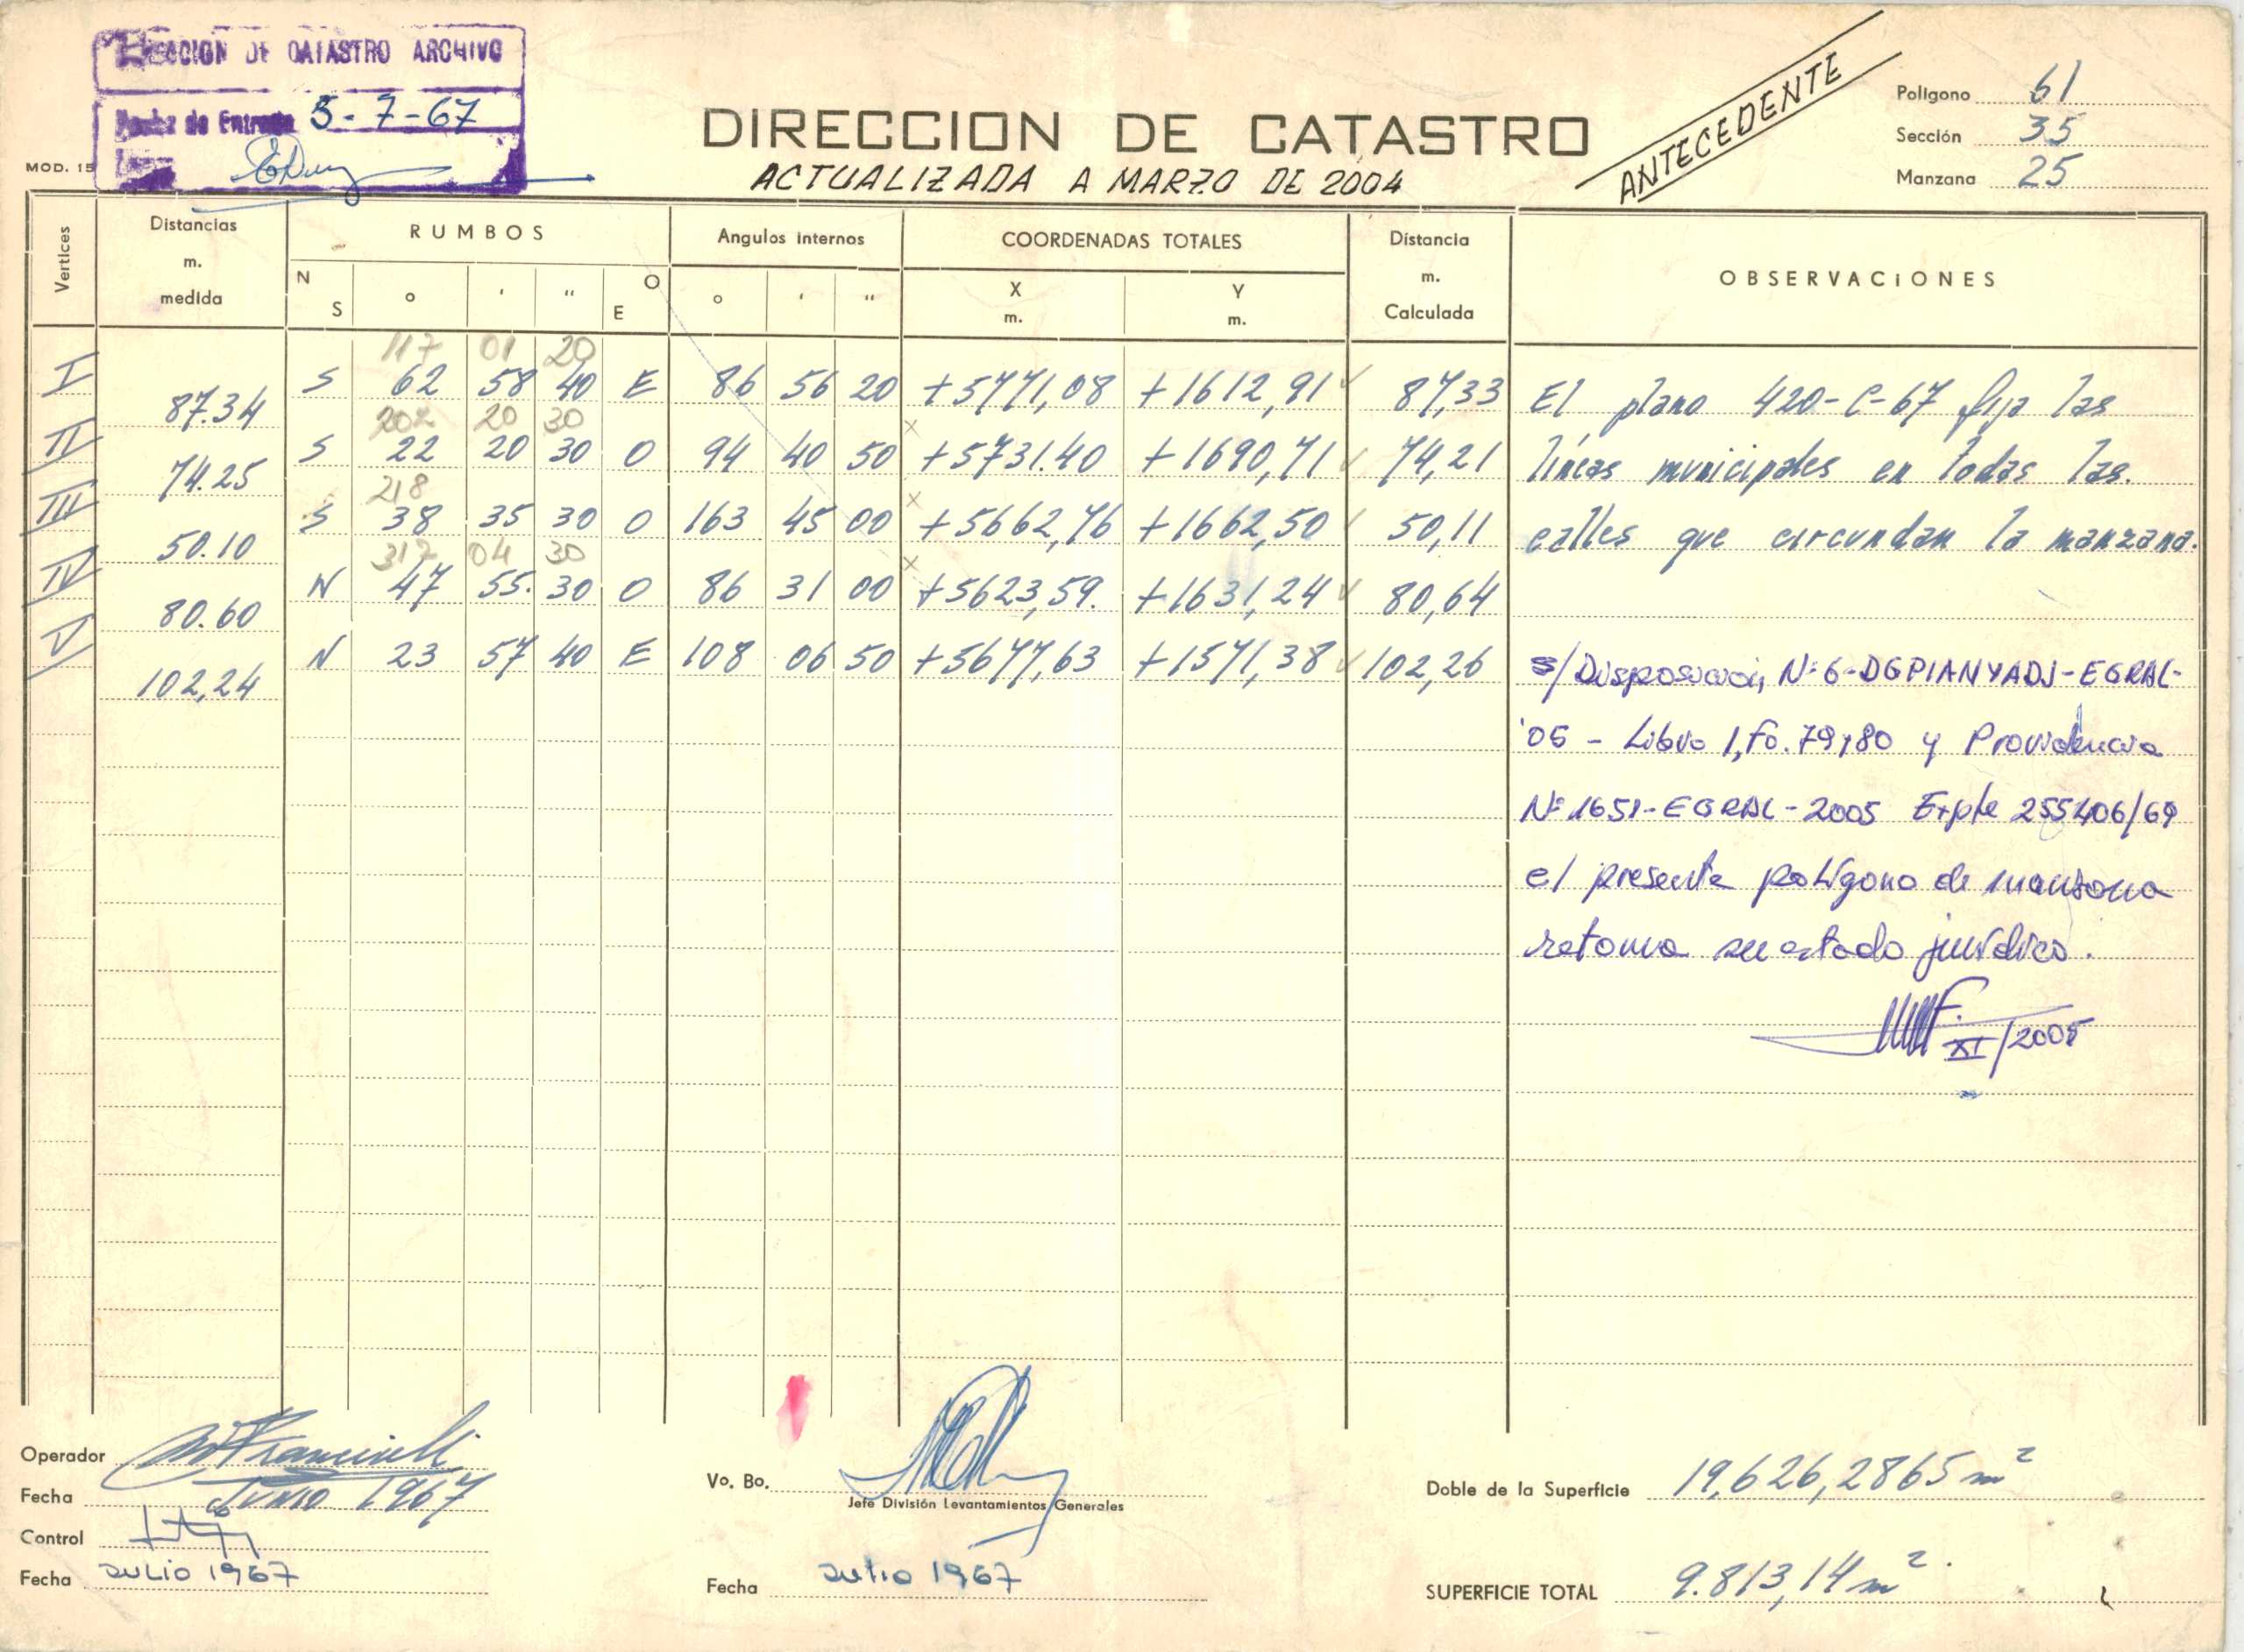 DE CATASTRO ARCHIVO
de Entrada 5-7-67
MOD. 15
DIRECCION DE CATASTRO
ACTUALIZADA A MARZO DE 2004
ANTECEDENTE
Poligono 61
Sección 35
Manzana 25
Vertices
Distancias m. medida
RUMBOS
N S ° ' " O E
Angulos internos
° ' "
COORDENADAS TOTALES
X m. Y m.
Distancia m. Calculada
OBSERVACIONES
117 01 20
I S 62 58 40 E 86 56 20 +5771,08 +1612,91 87,33 El plano 420-C-67 fija las
87.34
202 20 30
II S 22 20 30 O 94 40 50 +5731.40 +1690,71 74,21 líneas municipales en todas las.
74.25
218
III S 38 35 30 O 163 45 00 +5662,76 +1662,50 50,11 calles que circundan la manzana.
50.10
317 04 30
IV N 47 55. 30 O 86 31 00 +5623,59. +1631,24 80,64
80.60
V N 23 57 40 E 108 06 50 +5677,63 +1571,38 102,26 s/Disposición N°6-DGPIANYADJ-EGRAL-
102,24
'05 - Libro 1, Fo. 79,80 y Providencia
N°1651-EGRAL-2005 Expte 255406/69
el presente polígono de manzana
retoma su estado jurídico.
XI/2005
Operador
Fecha Junio 1967
Control
Fecha JULIO 1967
Vo. Bo.
Jefe División Levantamientos Generales
Fecha Julio 1967
Doble de la Superficie 19,626,2865 m²
SUPERFICIE TOTAL 9.813,14 m².